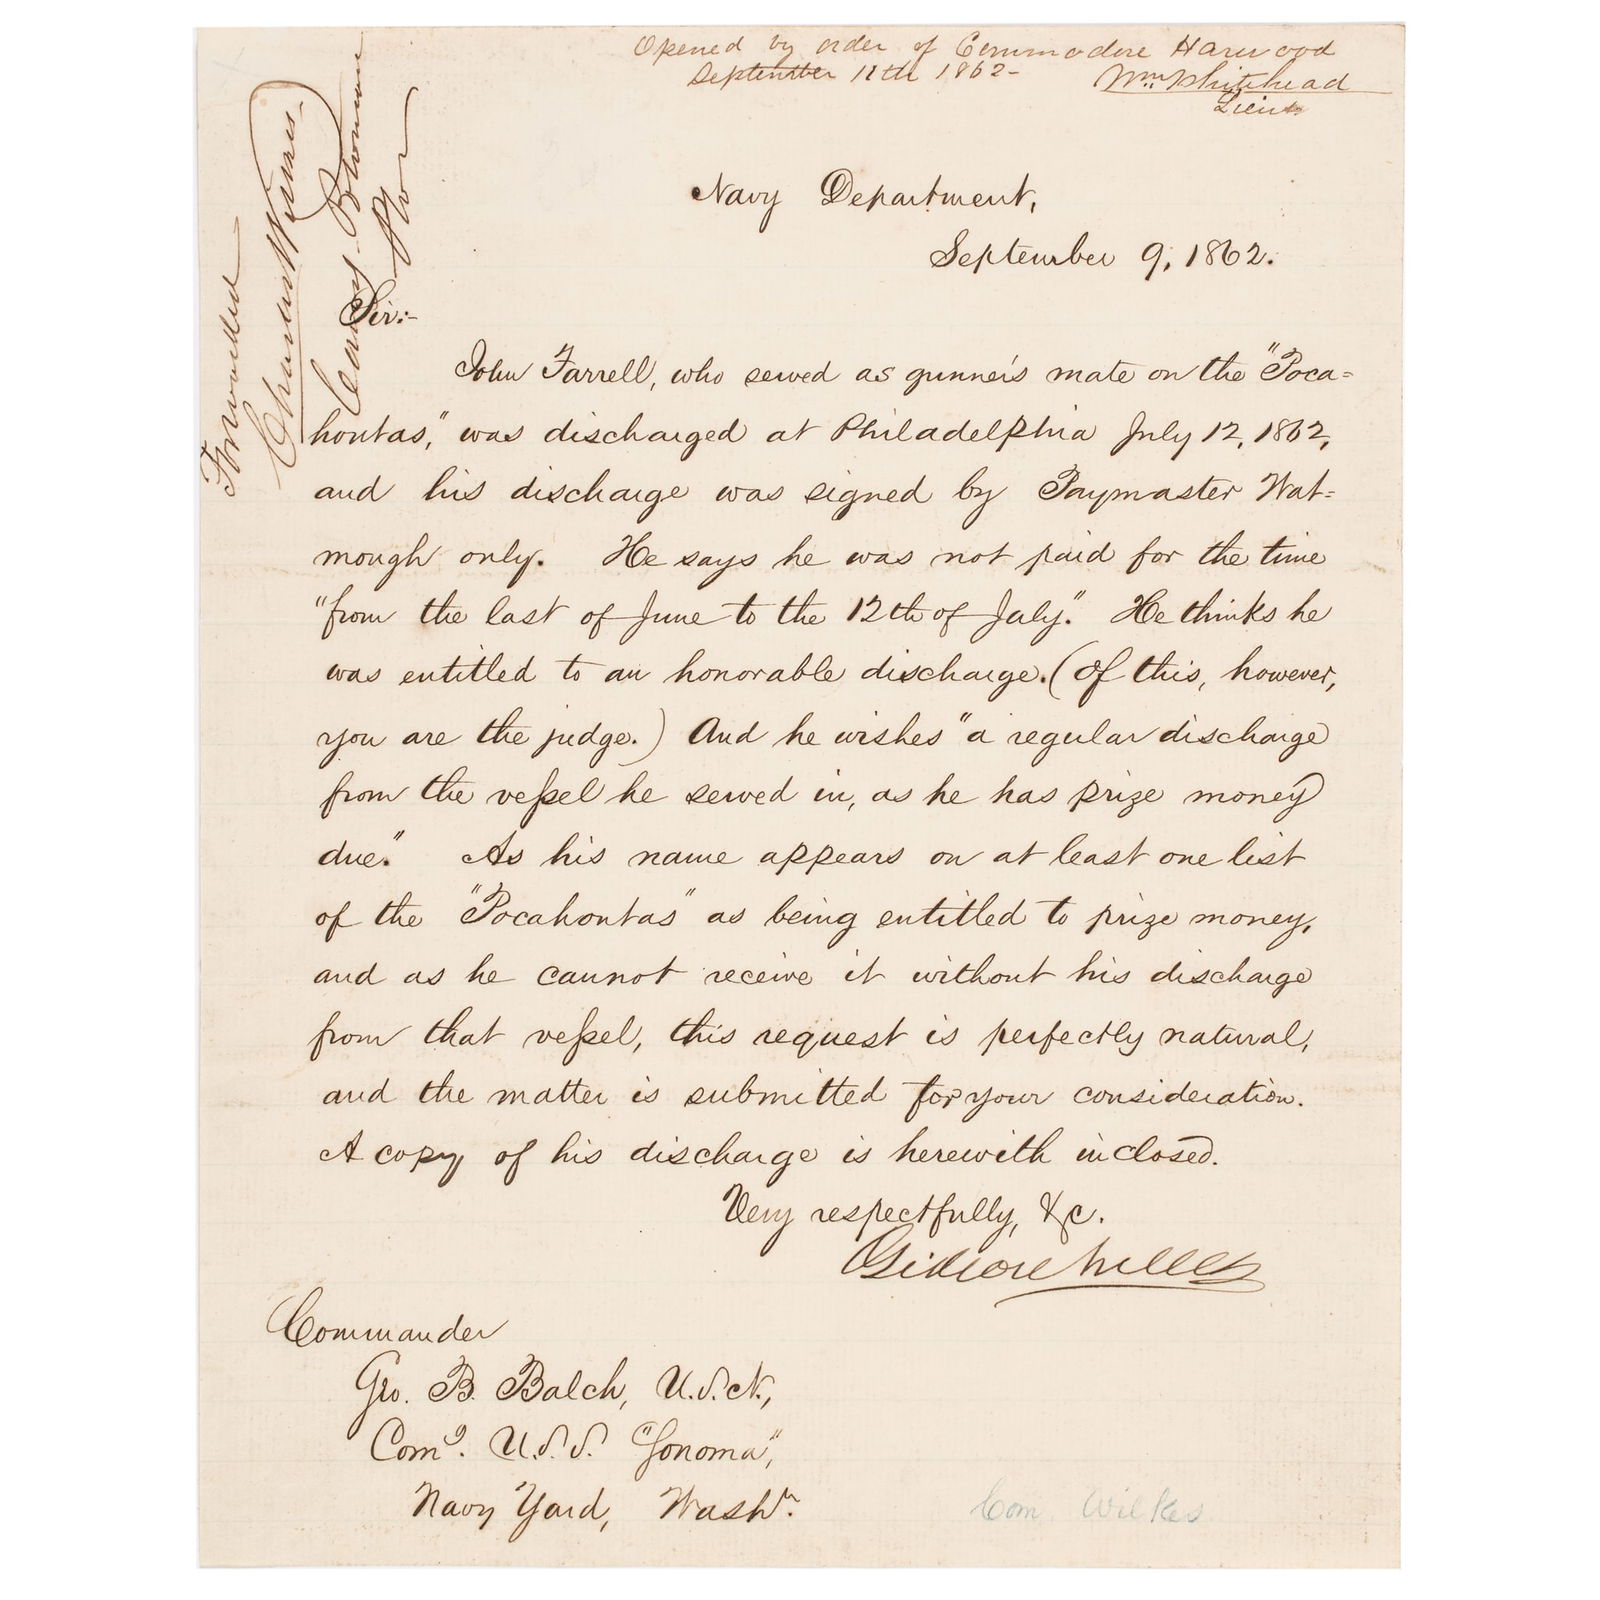 Opened by order of Commodore Harwood
September 11th 1862-
Wm. Whitehead
Lieut
Forwarded
Charles Wilkes.
Navy Department,
September 9, 1862.
Sir:-
John Farrell, who served as gunner's mate on the "Poca=
hontas," was discharged at Philadelphia July 12, 1862,
and his discharge was signed by Paymaster Wat=
mough only. He says he was not paid for the time
"from the last of June to the 12th of July." He thinks he
was entitled to an honorable discharge. (Of this, however,
you are the judge.) And he wishes "a regular discharge
from the vessel he served in, as he has prize money
due." As his name appears on at least one list
of the "Pocahontas" as being entitled to prize money,
and as he cannot receive it without his discharge
from that vessel, this request is perfectly natural,
and the matter is submitted for your consideration.
A copy of his discharge is herewith inclosed.
Very respectfully, &c.
Gideon Welles
Commander
Geo. B. Balch, U.S.N.,
Comd. U.S.S. "Sonoma",
Navy Yard, Washn.
Com Wilkes